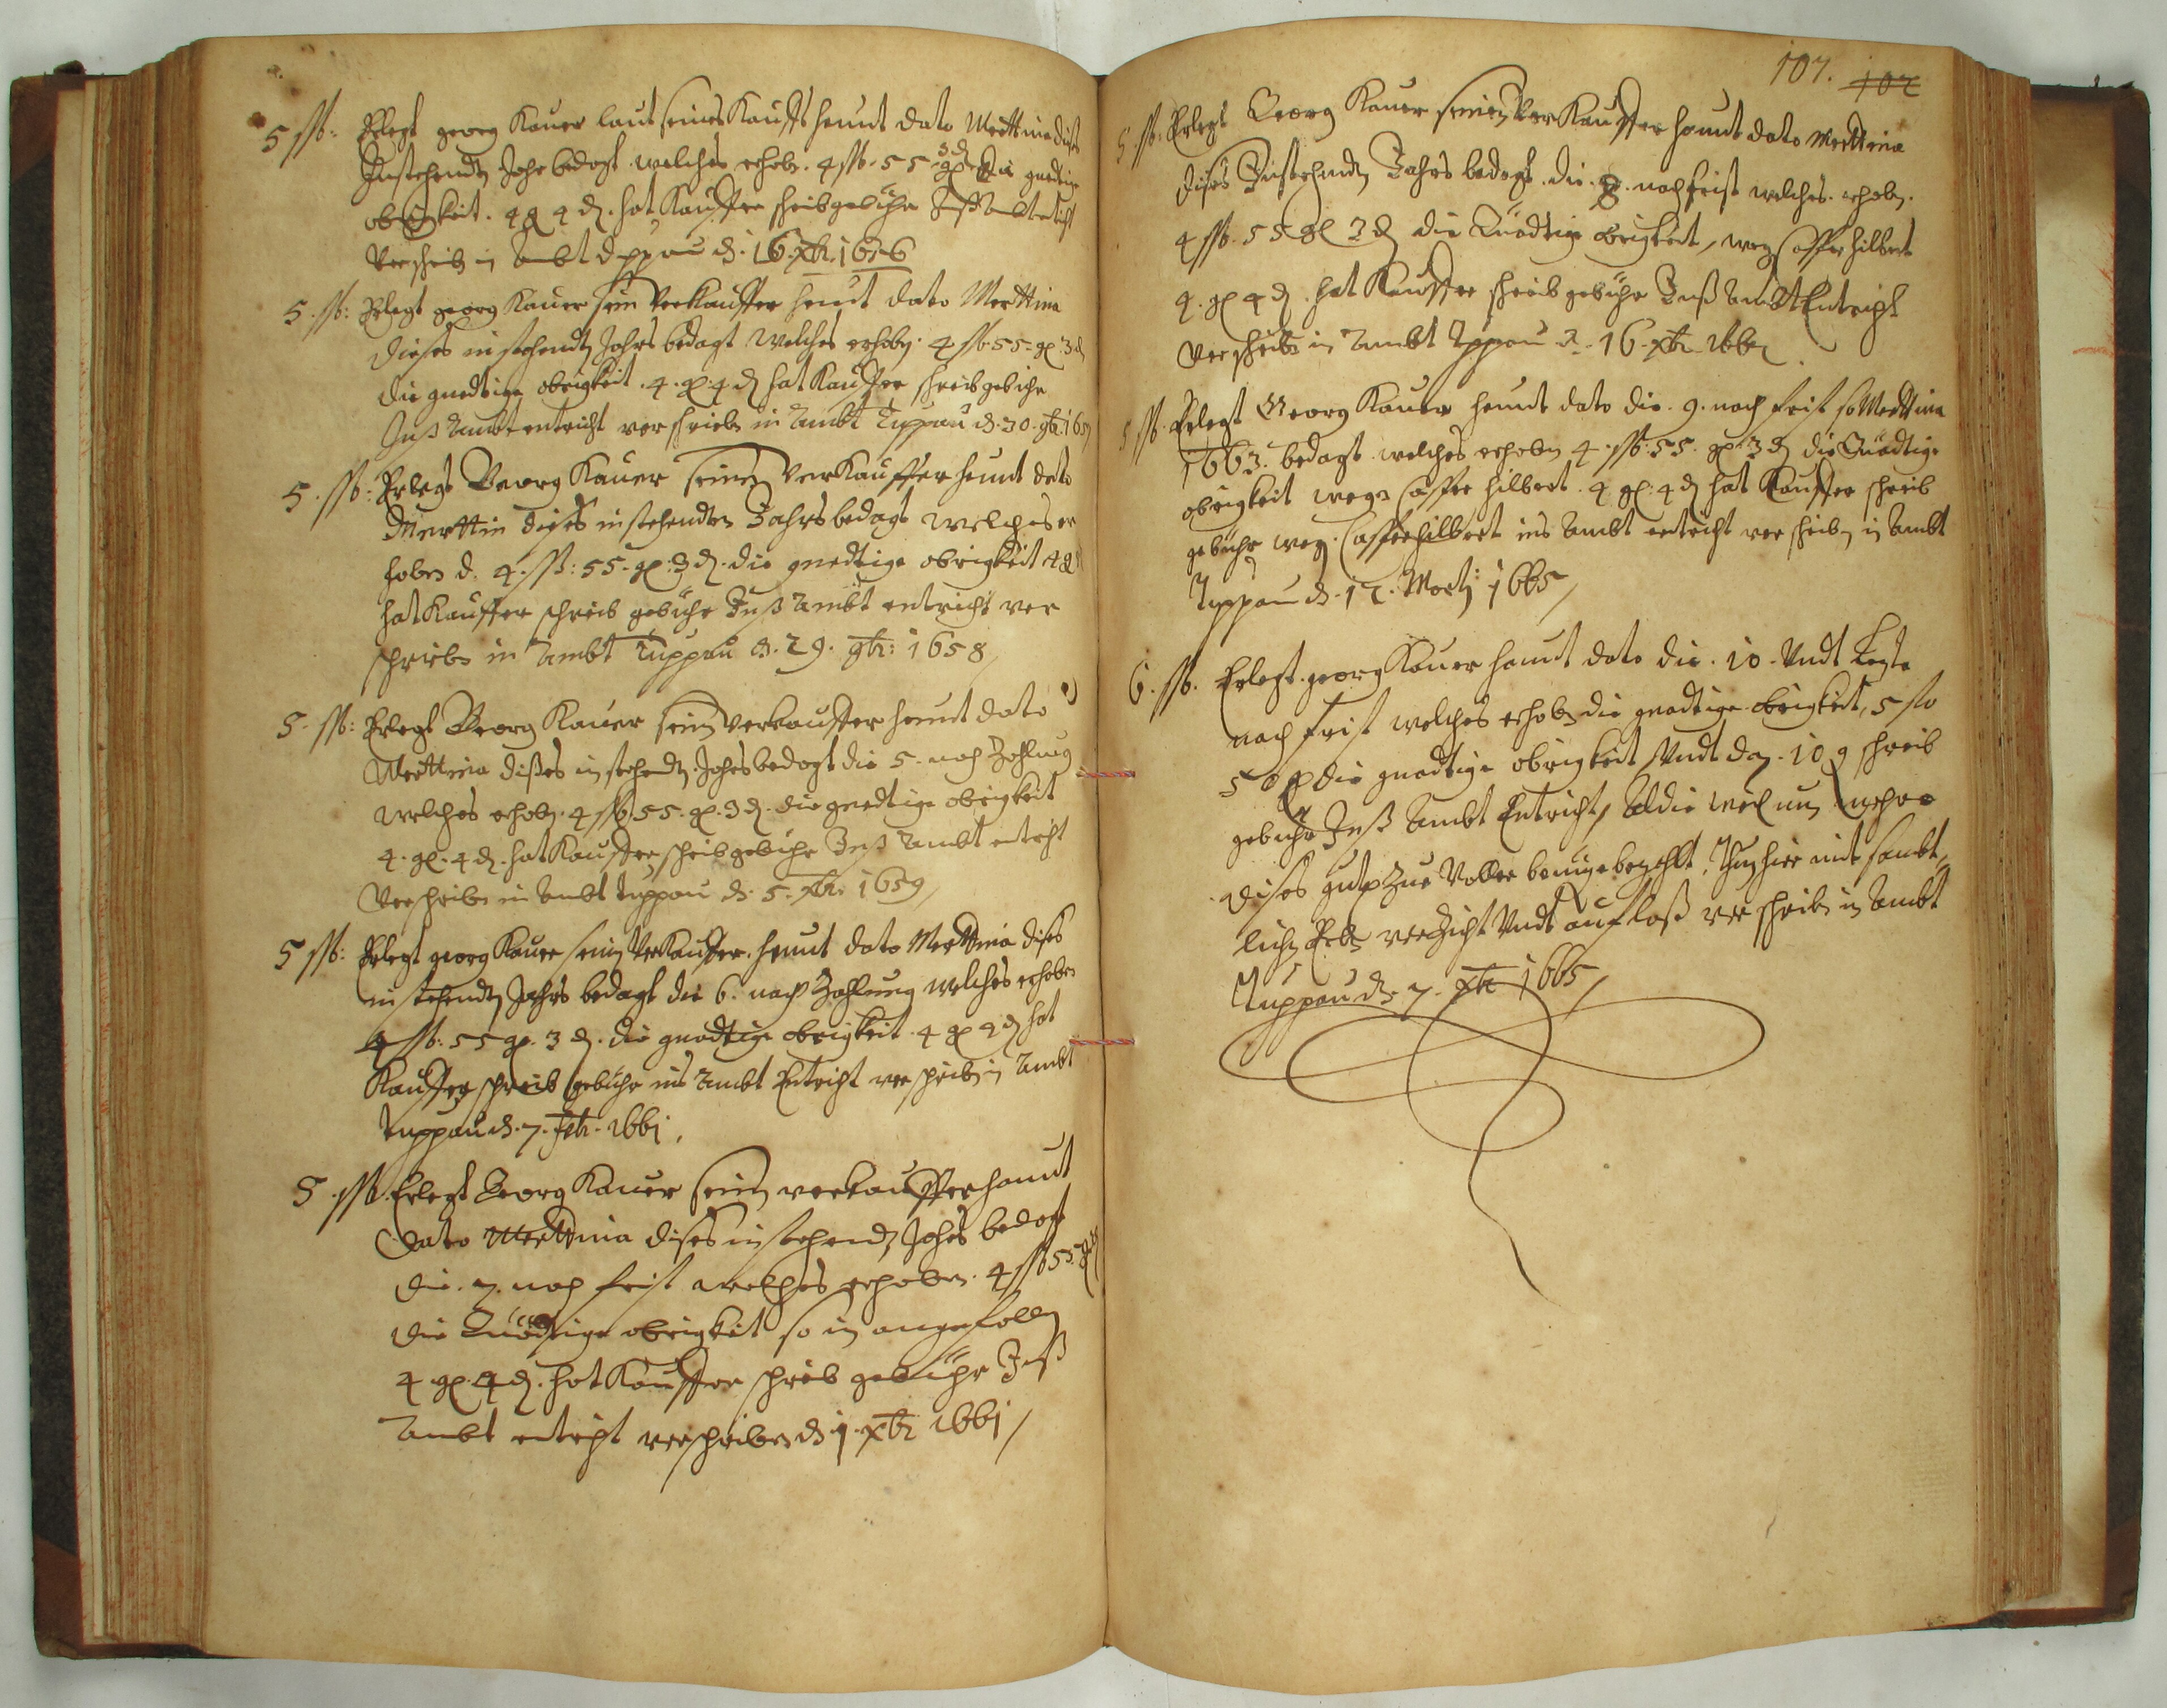 5 ßb: Erlegt georg Kauer laut seines Kauffs heunt dato Merttini dißes
Instehendtn Jahr bedagt welches erhobn. 4 ßb. 55 gl 3 d die gnedige
obrigkeit. 4 gl 4 d. hat Kauffer schreibgebühr Inß Ambt enticht
Verschriebn in Ambt Duppau d. 16. xbr. 1656
5. ßb: Erlegt georg Kauer sein Verkauffer heunt dato Merttini
dieses instehendtn Jahrs bedagt Welches erhobn. 4 ßb. 55. gl. 3 d
die gnedtige obrigkeit. 4. gl. 4 d hat Kauffer schreib gebihr
Inß Ambt entricht ver schriebn in Ambt Tuppau d. 30. 9br. 1657
5. ßb: Erlegt Georg Kauer seinen VerKauffer heunt dato
Merttin dießes instehendten Jahrs bedagt welches er
hobn d. 4. ßb: 55. gl. 3 d. die gnedtige obrigkeit 4 gl
hat Kauffer schreib gebühr Inß Ambt entricht ver
schriebn in Ambt Tuppau d. 29. 9br: 1658
5. ßb: Erlegt Georg Kauer seinen verkauffer heunt dato
Merttini dißes in stehendtn Jahrs bedagt die 5. nach Zahlung
welches erhobn. 4 ßb. 55. gl. 3 d. die gnedtige obrigkeit
4. gl. 4 d. hat Kauffer schreib gebühr Inß Ambt entricht
Verschriebn in Ambt tuppau d. 5. xbr. 1659
5 ßb: Erlegt georg Kauer seinen VerKauffer. heunt dato Merttini dises
in stehendtn Jahrs bedagt die 6. nach Zahlung welches erhoben
4 ßb. 55 gl. 3 d. die gnedtige obrigkeit. 4 gl 4 d hat
Kauffer schreib gebühr ins Ambt Entricht ver schriebn in Ambt
Tuppau d. 7. 1661.
5. ßb. Erlegt Georg Kauer seinen verkauffer heunt
Dato Merttini dises in stehendtn Jahrs bedagt
die. 7. nach frist welches erhobn. 4 ßb 55
die Gnädtige obrigkeit so in angefalln
4 gl. 4 d. hat Kauffer schreib gebühr Inß
Ambt entricht verschriebn d 1. xbr 1661
107. 102
5. ßb: Erlegt Georg Kauer seinen VerKauffer heunt dato Merttini
dises Instehendtn Jahrs bedagt. die. 8. nach frist welches. erhobn.
4 ßb. 55 gl 3 d die Gnädtige obrigkeit, wegn Casper hilbert
4. gl 4 d. hat Kauffer schreib gebühr Inß Ambt Entricht
Verschriebn in Ambt Tppau d. 16. xbr 1662
5 ßb. Erlegt Georg Kauer heunt dato die. 9. nach frist so Merttini
1663. bedagt. welches erhobn 4. ßb: 55. gl. 3 d die Gnädtige
obrigkeit wegn Casper hilbert. 4 gl: 4 d hat Kauffer schreib
gebühr weg. Casper hilbert ins Ambt entricht ver schriebn in Ambt
Tuppau d. 12. Martj: 1665
6. ßb. Erlegt. georg Kauer heunt dato die. 10. Vndt Lezte
nach frist welches erhobn die gnadtige obrigkeit, 5 ßo
50 gl die gnadtige obrigkeit Vndt dan. 10 g schreib
gebühr Inß Ambt Entricht, Aldie weil nun
dises gutt Zue Voller benuge bezahlt, Thun hier mit sambt,
lichn Erbn verzicht Vndt auflaß ver schriebn in Ambt
Tuppau d. 7. xbr 1665